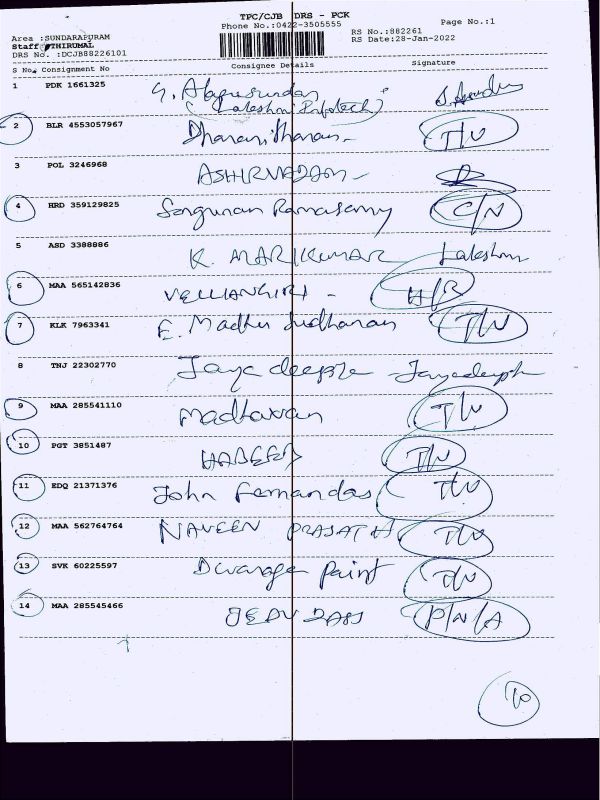 TPC/CJB DRS - PCK
Phone No.:0422-3505555 Page No.:1
Area :SUNDARAPURAM RS No.:882261
Staff :THIRUMAL RS Date:28-Jan-2022
DRS No. :DCJB88226101
S No. Consignment No Consignee Details Signature
1 PDK 1661325 S. Alagusundar
(Lakshmi Infotech)
2 BLR 4553057967 Dharanitharan T/N
3 POL 3246968 ASHIRVADAM
4 HRD 359129825 Sorgunan Ramasamy C/N
5 ASD 3388886 K. MARIKUMAR Lakshmi
6 MAA 565142836 VELLIANGIRI - H/R
7 KLK 7963341 E. Madhu Sudhanan T/N
8 TNJ 22302770 Jaya deepta - Jayadeepta
9 MAA 285541110 Madhavan T/N
10 PGT 3851487 HABEEB T/N
11 EDQ 21371376 John Fernandas T/N
12 MAA 562764764 NAVEEN PRASATH T/N
13 SVK 60225597 Dwaraga Paint T/N
14 MAA 285545466 P/N/A
10